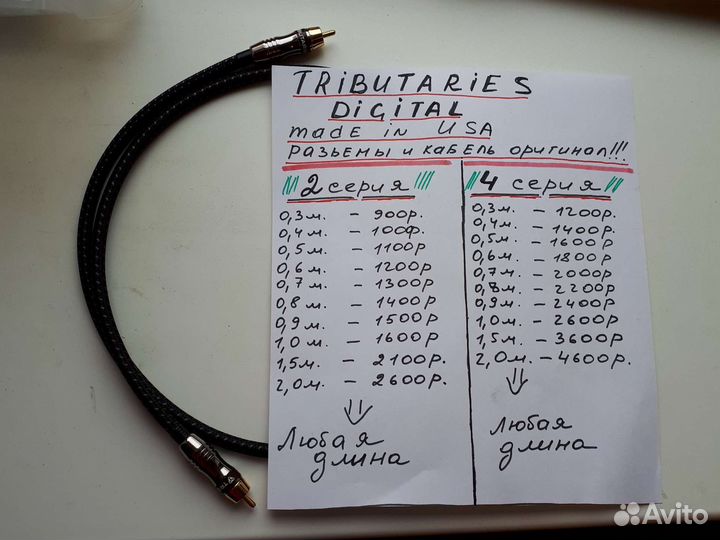 TRIBUTARIES
DIGITAL
made in USA
РАЗЬЕМЫ И КАБЕЛЬ ОРИГИНАЛ!!!
2 серия
0,3м. - 900р.
0,4м. - 1000р.
0,5м. - 1100р
0,6м - 1200р
0,7м - 1300р
0,8м - 1400р
0,9м - 1500р
1,0м - 1600р
1,5м. - 2100р
2,0м. - 2600р.
Любая
длина
4 серия
0,3м. - 1200р.
0,4м. - 1400р.
0,5м. - 1600р
0,6м. - 1800р
0,7м - 2000р
0,8м - 2200р
0,9м - 2400р
1,0м - 2600р
1,5м - 3600р
2,0м. - 4600р.
Любая
длина
Avito